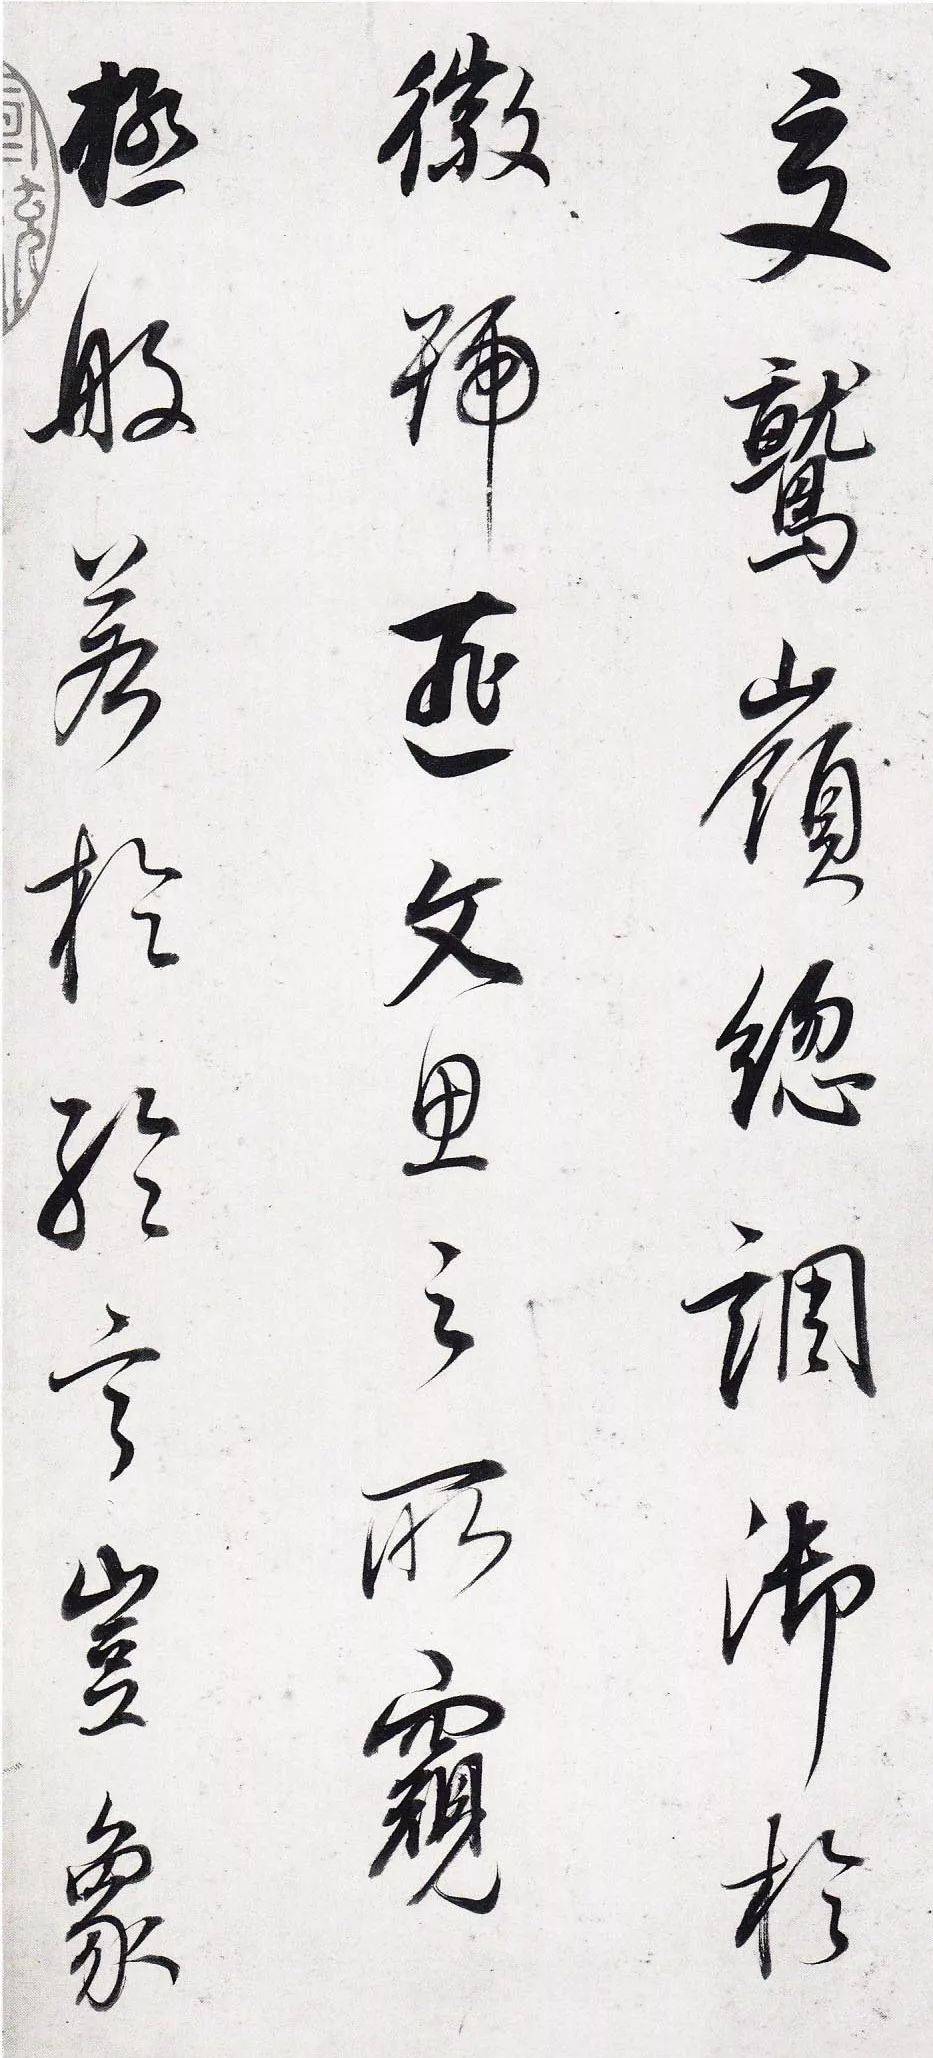 交鷲嶺總調御於
徽號匪文思之所窺
極般若於綸言豈象